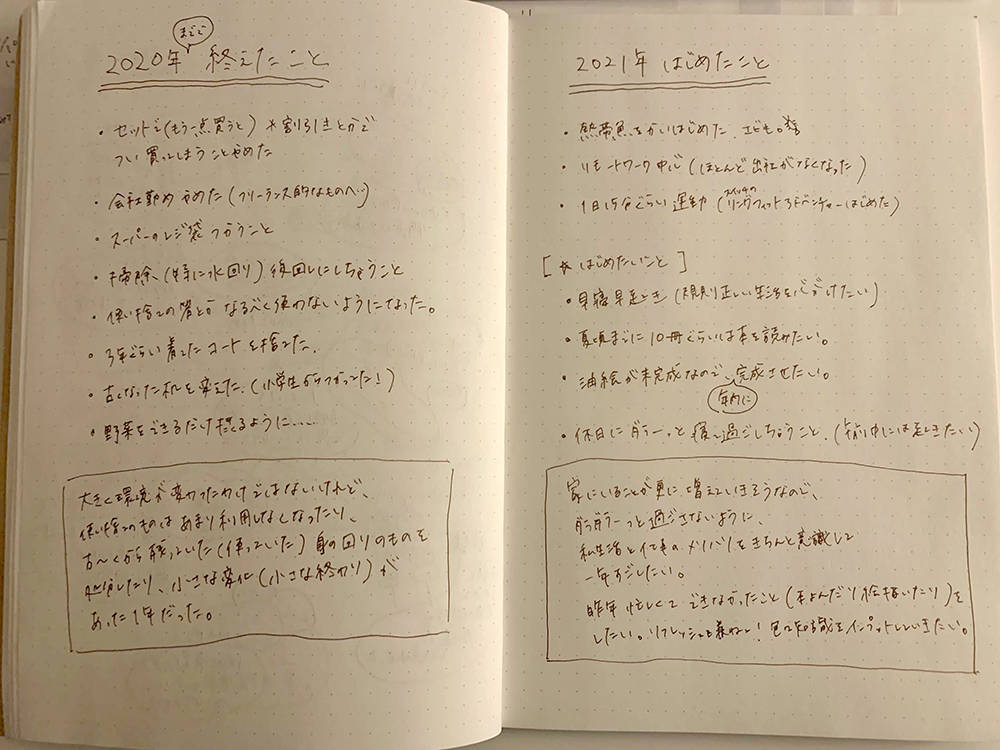 2020年までで 終えたこと
・セットで(もう一点買うと) *割引きとかで
つい買ってしまうことやめた
・会社勤めやめた(フリーランス的なものへ)
・スーパーのレジ袋つかうこと
・掃除(特に水回り)後回しにしちゃうこと
・使い捨ての箸とか なるべく使わないようになった。
・3年ぐらい着てたコートを捨てた.
・古くなった机を変えた.(小学生からつかってた!)
・野菜をできるだけ摂るように……
大きく環境が変わったわけではないけれど、
使い捨てのものはあまり利用しなくなったり、
古〜くから残っていた(使っていた)身の回りのものを
処分したり、小さな変化(小さな終わり)が
あった1年だった。
2021年 はじめたこと
・熱帯魚をかいはじめた.
・リモートワーク中心(ほとんど出社がなくなった)
・1日15分ぐらい運動(スイッチのリングフィットアドベンチャーはじめた)
[*はじめたいこと]
・早寝早起き(規則正しい生活を心がけたい)
・夏頃までに10冊ぐらいは本を読みたい。
・油絵が未完成なので、年内に完成させたい。
・休日にダラーっと寝て過ごしちゃうこと.(午前中には起きたい)
家にいることが更に増えていきそうなので、
ダラダラーっと過ごさないように、
私生活と仕事のメリハリをきちんと意識して
一年すごしたい。
昨年忙しくてできなかったこと(本よんだり絵描いたり)を
したい。リフレッシュも兼ねて!色々知識をインプットしていきたい。